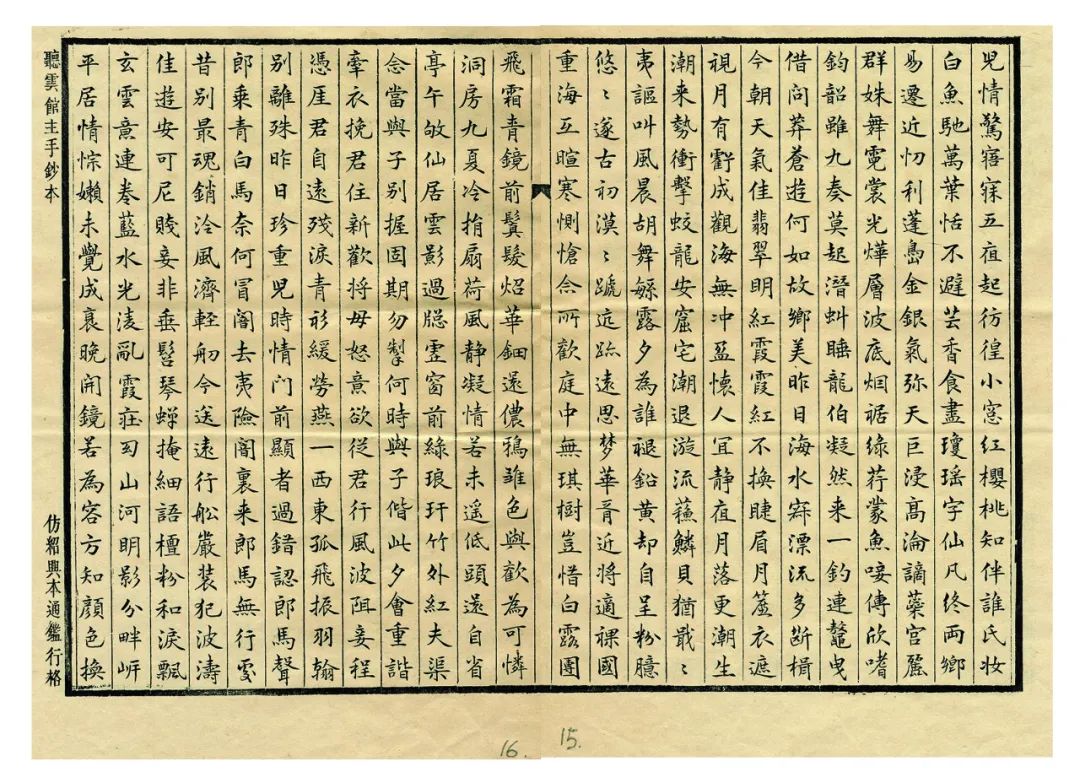 兒情驚寤寐五夜起彷徨小窓紅櫻桃知伴誰氏妝
白魚馳萬葉恬不避芸香食盡瓊瑤字仙凡終兩鄉
易遷近忉利蓬島金銀氣弥天巨浸高淪謫蘂宮麗
群姝舞霓裳光燁層波底烟裾綠荇蒙魚唼傳欣嗜
鈞韶雖九奏莫起潛虯睡龍伯凝然来一釣連鼇曳
借問莽蒼遊何如故鄉美昨日海水寐漂流多断楫
今朝天氣佳翡翠明紅霞霞紅不換睫眉月簑衣遮
視月有虧成觀海無冲盈懷人宜静夜月落更潮生
潮来勢衝擊蛟龍安窟宅潮退漩流蘓鱗貝猶戢〻
夷謳叫風晨胡舞綠露夕為誰褪鉛黃却自呈粉臆
悠〻邃古初漠〻踪迹遠思梦華胥近將適裸國
重海互暄寒惻愴念所歡庭中無琪樹豈惜白露團
飛霜青鏡前鬢髮炤華鈿還儂鴉雛色與歡為可憐
洞房九夏冷捐扇荷風静凝情若未遥低頭還自省
亭午敂仙居雲影過牎虚窗前綠琅玕竹外紅夫渠
念當與子別握固期勿掣何時與子偕此夕會重諧
牽衣挽君住新歡將毋怒意欲從君行風波阻妾程
憑厓君自遠殘淚青衫緩勞燕一西東孤飛振羽翰
別離殊昨日珍重兒時情門前顯者過錯認郎馬聲
郎乘青白馬奈何冒闇去夷險闇裏来郎馬無行處
昔別最魂銷泠風濟輕舠今送遠行舩嚴装犯波濤
佳遊安可尼賤妾非垂髫琴蟬掩細語檀粉和淚飄
玄雲意連拳藍水光淩亂霞莊囙山河明影分畔岍
平居情悰嬾未覺成衰晚開鏡若為容方知顏色換
聽雲館主手鈔本
仿紹興本通鑑行格
15.
16.